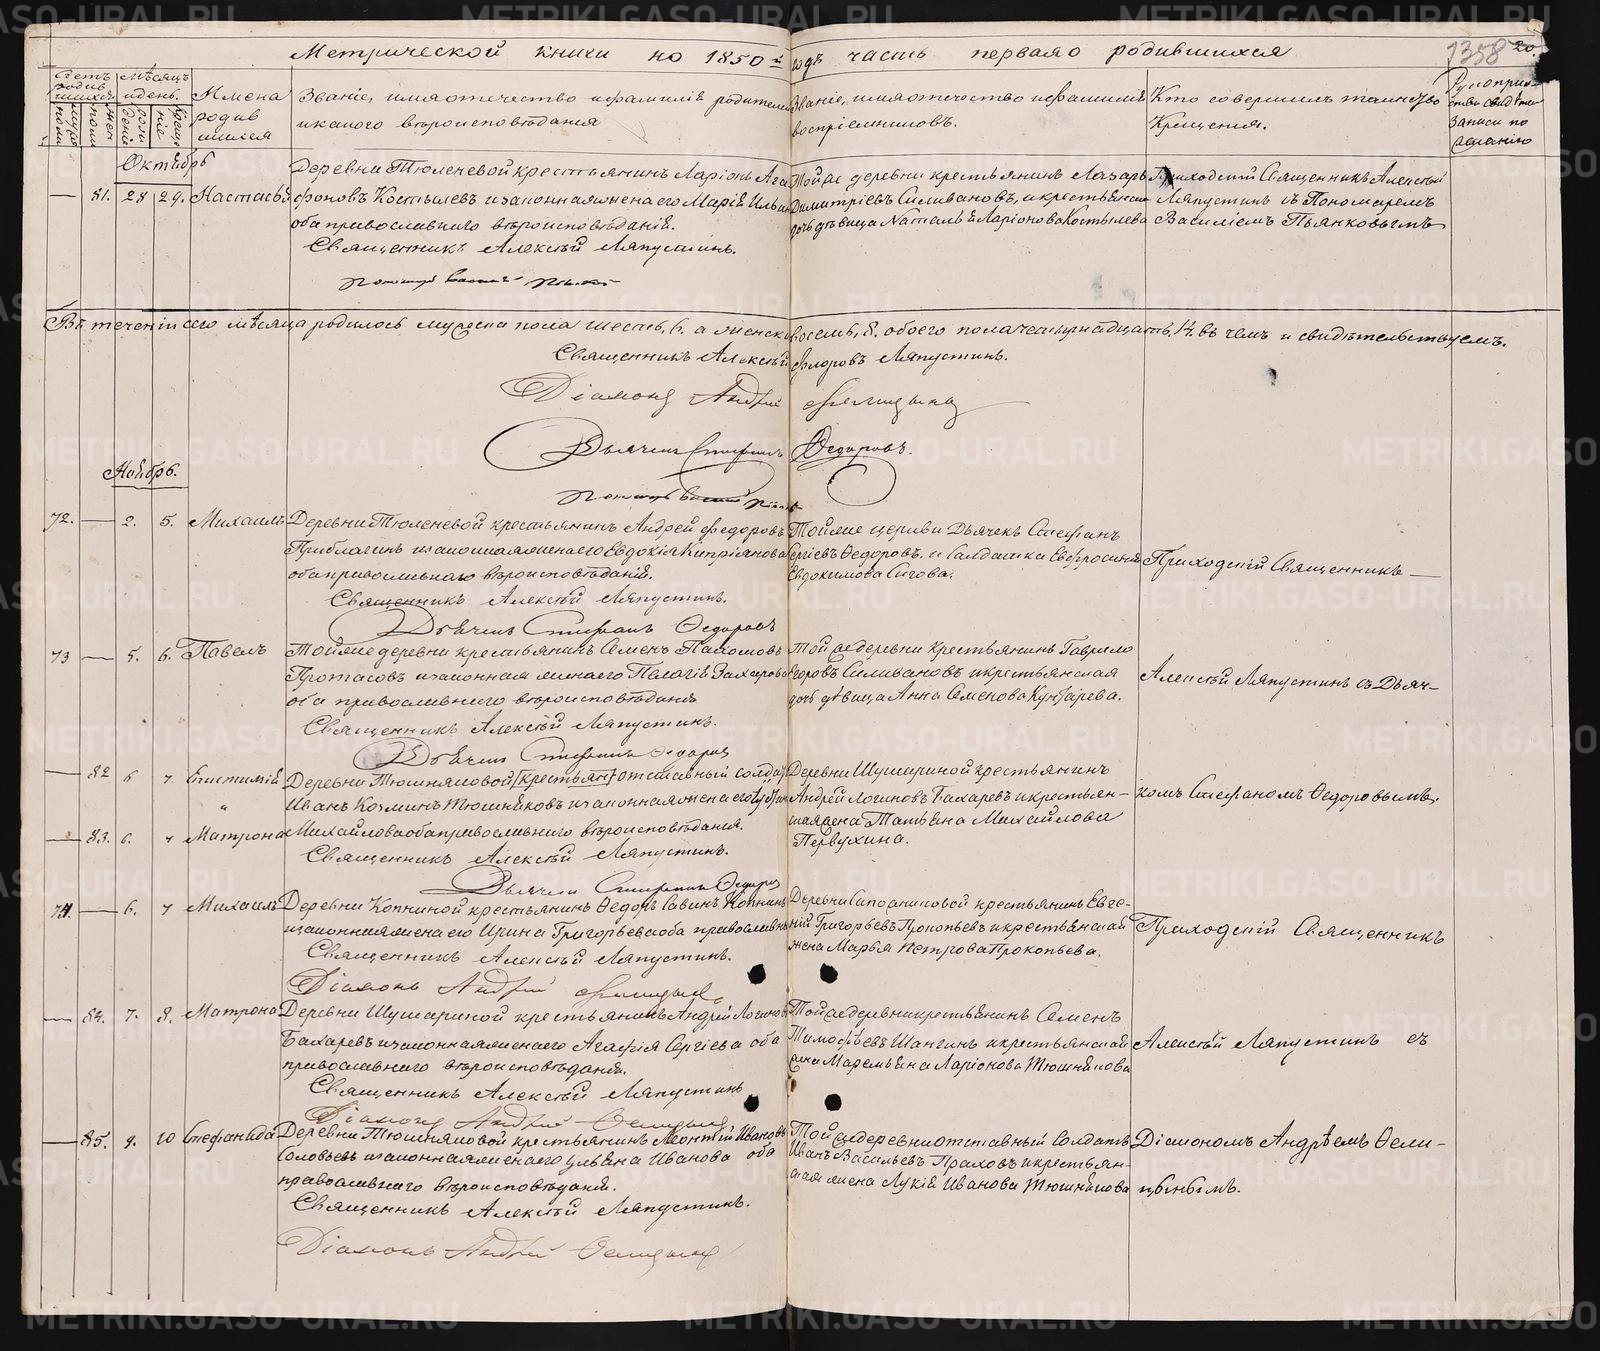 Метрической книги на 1850й годъ часть первая о родившихся
1358
20
Счетъ родившихся
Мѣсяцъ и день.
Имена родившихся
Званіе, имя отчество и фамилія родителей
и какого вѣроисповѣданія
Званіе, имя отчество и фамилія
воспріемниковъ.
Кто совершилъ таинство
Крещенія.
Рукоприкладство свидѣтелей
записи по
желанію
Октябрь
— 81. 28 29. Настасья
Деревни Тюленевой крестьянинъ Ларіонъ Ага
фоновъ Костылевъ и законная жена его Марія Ильина
оба православнаго вѣроисповѣданія.
Священникъ Алексѣй Ляпустинъ.
Той же деревни крестьянинъ Лазарь
Димитріевъ Силивановъ, и крестьянская
дочь дѣвица Наталья Ларіонова Костылева
Приходскій Священникъ Алексѣй
Ляпустинъ съ Пономаремъ
Василіемъ Пьянковымъ
Въ теченіи сего мѣсяца родилось мужеска пола шесть, 6. а женска восемь, 8. обоего пола четырнадцать, 14. въ чемъ и свидѣтельствуемъ.
Священникъ Алексѣй Флоровъ Ляпустинъ.
Діаконъ Андрей
Дьячекъ Стефанъ Ѳедоровъ.
Ноябрь.
72. — 2. 5. Михаилъ
Деревни Тюленевой крестьянинъ Андрей Федоровъ
законная жена его Евдокія Кипріанова
оба православнаго вѣроисповѣданія.
Священникъ Алексѣй Ляпустинъ.
Дьячекъ Стефанъ Ѳедоровъ
Тойже церкви Дьячекъ Стефанъ
Сергіевъ Ѳедоровъ, и Салдатка Евфросинія
Евдокимова Сигова.
Приходскій Священникъ —
73 — 5. 6. Павелъ
Тойже деревни крестьянинъ Семенъ Пахомовъ
Протасовъ и законная жена его Пелагія Захарова
оба православнаго вѣроисповѣданія
Священникъ Алексѣй Ляпустинъ.
Дьячекъ Стефанъ Ѳедоровъ
Той же деревни крестьянинъ Гаврило
Егоровъ Силивановъ и крестьянская
дочь дѣвица Анна Семенова
Алексѣй Ляпустинъ съ Дьяч-
— 82 6 7 Евстимія
— 83. 6. 7 Матрона
Деревни Тюшняковой [крестьян] отставный солдатъ
Иванъ Козминъ Тюшняковъ и законная жена его
Михайлова оба православнаго вѣроисповѣданія.
Священникъ Алексѣй Ляпустинъ.
Дьячекъ Стефанъ Ѳедоровъ
Деревни Шушариной крестьянинъ
Андрей Логиновъ Бахаревъ и крестьян-
ская жена Татьяна Михайлова
Первухина.
комъ Стефаномъ Ѳедоровымъ.
74. — 6. 7 Михаилъ
Деревни Копниной крестьянинъ Ѳедоръ Савинъ Копнинъ
и законная жена его Ирина Григорьева оба православнаго
Священникъ Алексѣй Ляпустинъ.
Діаконъ Андрей
Деревни Сапожниковой крестьянинъ Евге-
ній Григорьевъ Прокопьевъ и крестьянская
жена Марья Петрова Прокопьева.
Приходскій Священникъ
— 84. 7. 8. Матрона
Деревни Шушариной крестьянинъ Андрей Логиновъ
Бахаревъ и законная жена его Агафія Сергіева оба
православнаго вѣроисповѣданія.
Священникъ Алексѣй Ляпустинъ
Діаконъ Андрей
Той же деревни крестьянинъ Семенъ
Тимофѣевъ Шангинъ и крестьянская
жена Маремьяна Ларіонова Тюшнякова
Алексѣй Ляпустинъ съ
— 85. 9. 10 Стефанида
Деревни Тюшняковой крестьянинъ Леонтій Ивановъ
Соловьевъ и законная жена его Ульяна Иванова оба
православнаго вѣроисповѣданія.
Священникъ Алексѣй Ляпустинъ.
Діаконъ Андрей
Той же деревни отставный Солдатъ
Иванъ Васильевъ Праховъ и крестьян-
ская жена Лукія Иванова Тюшнякова
Діакономъ Андрѣемъ Ѳели-
цынымъ.
METRIKI.GASO-URAL.RU